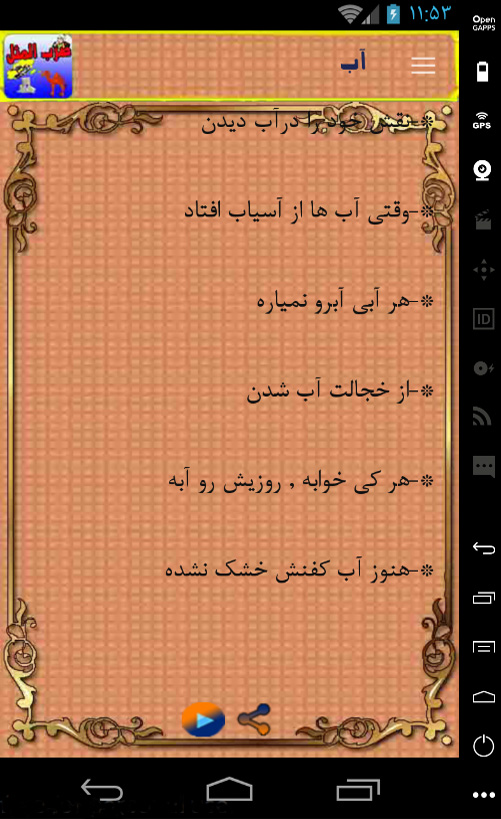 Open
GAPPS
۱۱:۵۳
ضرب المثل
آب
GPS
❊-نقش خود را درآب دیدن
❊-وقتی آب ها از آسیاب افتاد
❊-هر آبی آبرو نمیاره
ID
❊-از خجالت آب شدن
❊-هر کی خوابه , روزیش رو آبه
❊-هنوز آب کفنش خشک نشده